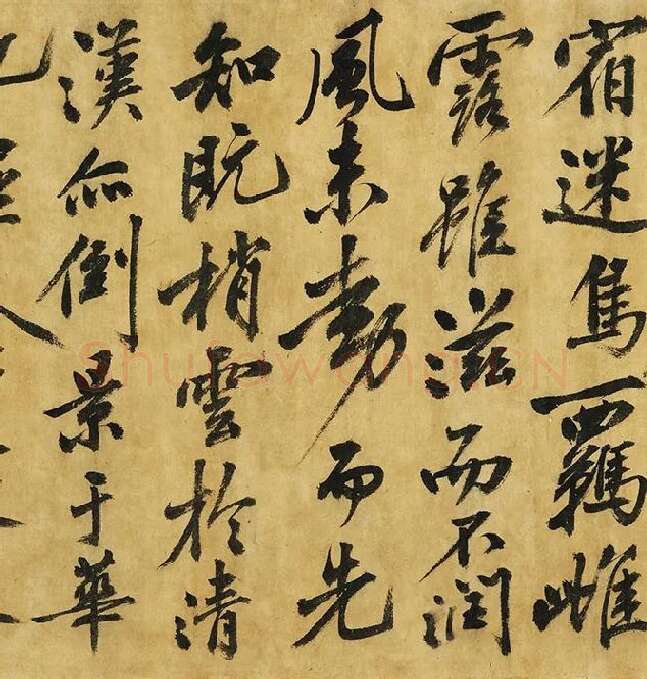 宿迷鳥羈雌
露雖滋而不潤
風未動而先
知既梢雲於清
漢亦倒景于華
Shufawang.CN